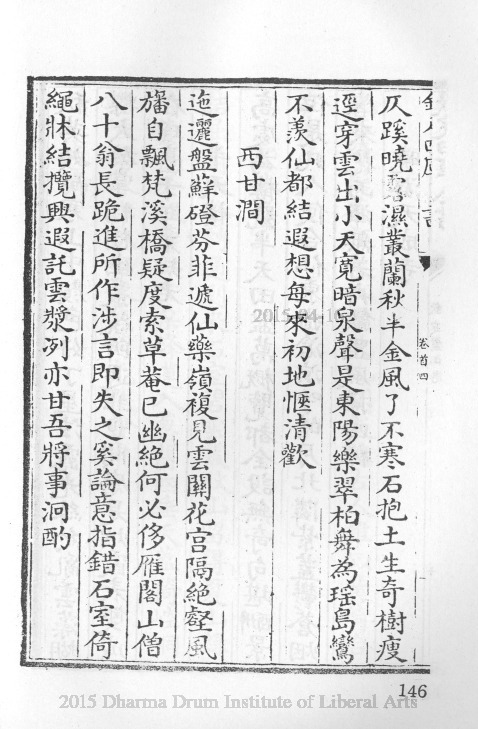 卷首四
仄蹊曉露濕叢蘭秋半金風了不寒石抱土生奇樹瘦
逕穿雲出小天寬暗泉聲是東陽樂翠柏舞為瑤島鸞
不羨仙都結遐想每來初地愜清歡
西甘澗
迤邐盤蘚磴芬菲遞仙藥嶺複見雲關花宮隔絕壑風
旛自飄梵溪橋疑度索草菴已幽絕何必侈雁閣山僧
八十翁長跪進所作涉言即失之奚論意指錯石室倚
繩牀結攬興遐託雲漿冽亦甘吾將事泂酌
146
2015 Dharma Drum Institute of Liberal Arts